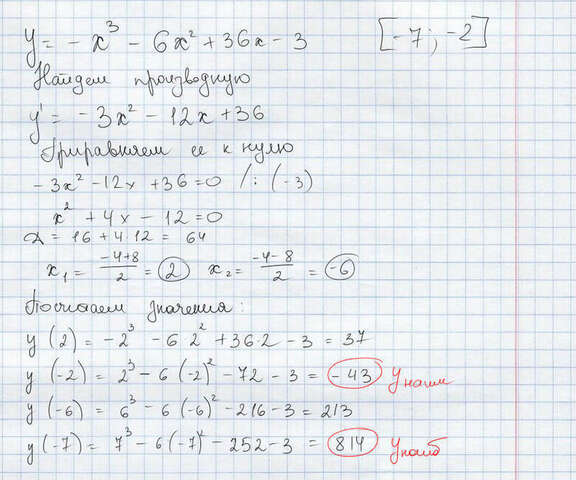 y = -x³ - 6x² + 36x - 3 [-7; -2]
Найдем производную
y' = -3x² - 12x + 36
Приравняем ее к нулю
-3x² - 12x + 36 = 0 /: (-3)
x² + 4x - 12 = 0
D = 16 + 4·12 = 64
x₁ = (-4+8)/2 = 2 x₂ = (-4-8)/2 = -6
Посчитаем значения:
y(2) = -2³ - 6 2² + 36·2 - 3 = 37
y(-2) = 2³ - 6(-2)² - 72 - 3 = -43 yнаим
y(-6) = 6³ - 6(-6)² - 216 - 3 = 213
y(-7) = 7³ - 6(-7)² - 252 - 3 = 814 yнаиб